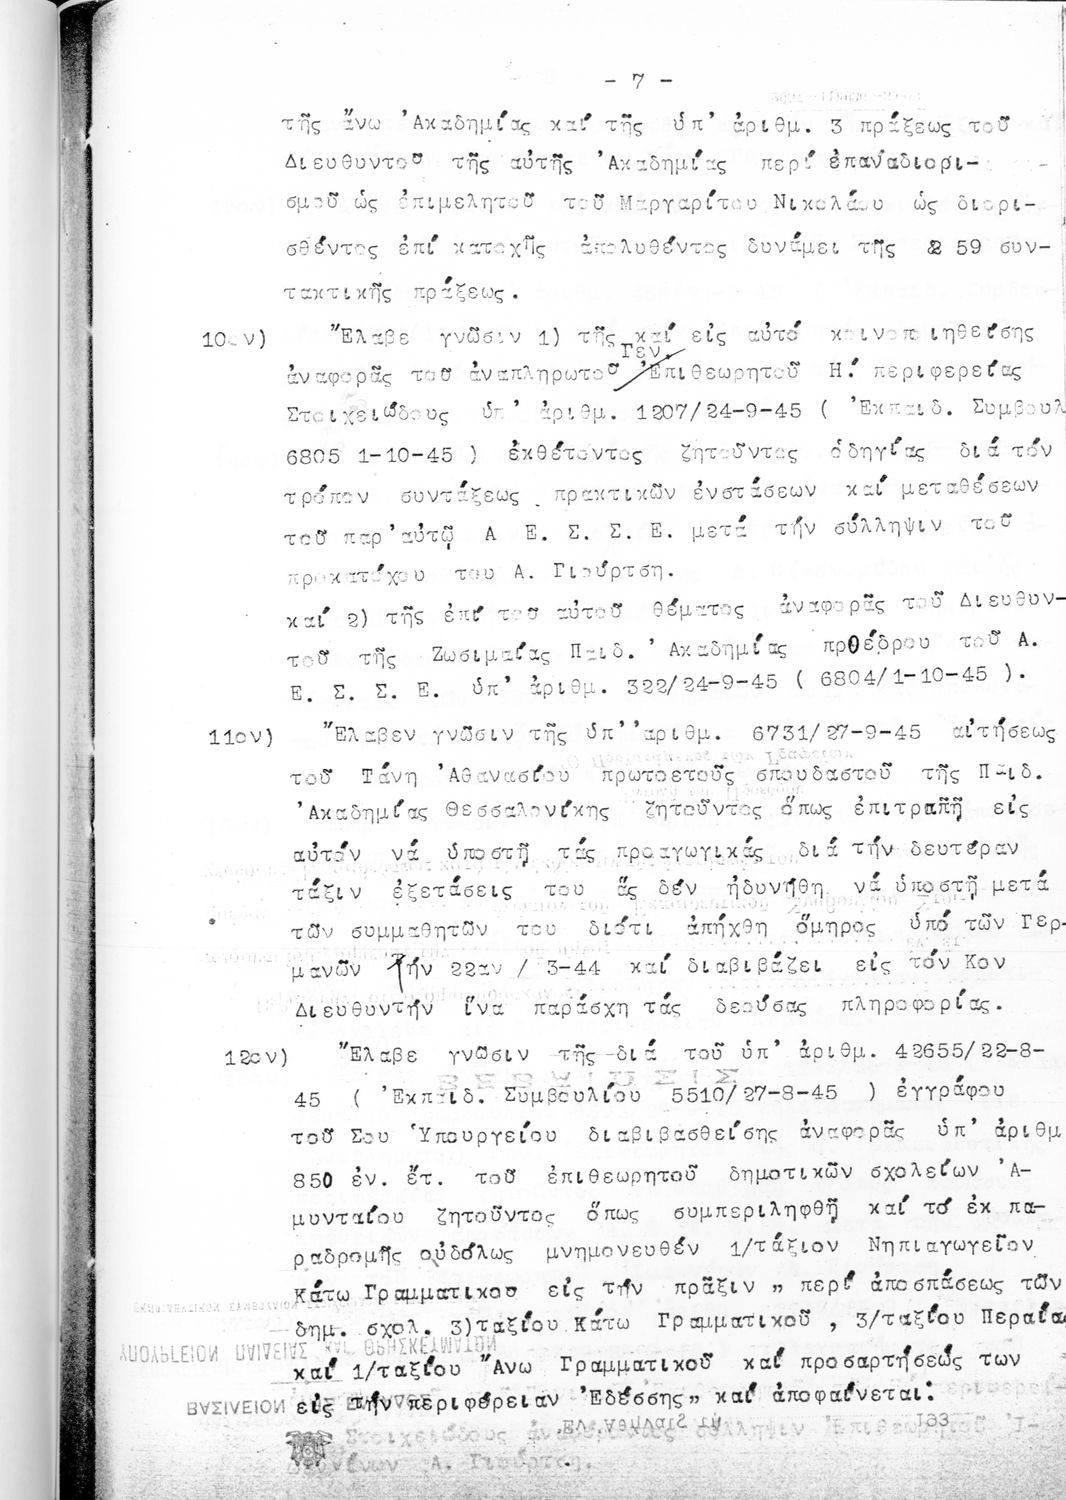 - 7 -
τῆς ἄνω Ἀκαδημίας καί τῆς ὑπ' ἀριθμ. 3 πράξεως τοῦ
Διευθυντοῦ τῆς αὐτῆς Ἀκαδημίας περί ἐπαναδιορι-
σμοῦ ὡς ἐπιμελητοῦ τοῦ Μαργαρίτου Νικολάου ὡς διορι-
σθέντος ἐπί κατοχῆς ἀπολυθέντος δυνάμει τῆς 2 59 συν-
τακτικῆς πράξεως.
10ον) Ἔλαβε γνῶσιν 1) τῆς καί εἰς αὐτό κοινοποιηθείσης
Γεν.
ἀναφορᾶς τοῦ ἀναπληρωτοῦ Ἐπιθεωρητοῦ Η! περιφερείας
Στοιχειώδους ὑπ' ἀριθμ. 1207/24-9-45 ( Ἐκπαιδ. Συμβουλ
6805 1-10-45 ) ἐκθέτοντος ζητοῦντος ὁδηγίας διά τόν
τρόπον συντάξεως πρακτικῶν ἐνστάσεων καί μεταθέσεων
τοῦ παρ'αὐτῷ Α Ε. Σ. Σ. Ε. μετά τήν σύλληψιν τοῦ
προκατόχου του Α. Γιούρτση.
καί 2) τῆς ἐπί τοῦ αὐτοῦ θέματος ἀναφορᾶς τοῦ Διευθυν-
τοῦ τῆς Ζωσιμαίας Παιδ. Ἀκαδημίας πρθέδρου τοῦ Α.
Ε. Σ. Σ. Ε. ὑπ' ἀριθμ. 322/24-9-45 ( 6804/1-10-45 ).
11ον) Ἔλαβεν γνῶσιν τῆς ὑπ''αριθμ. 6731/27-9-45 αἰτήσεως
τοῦ Τάνη Ἀθανασίου πρωτοετοῦς σπουδαστοῦ τῆς Παιδ.
Ἀκαδημίας Θεσσαλονίκης ζητοῦντος ὅπως ἐπιτραπῇ εἰς
αὐτόν νά ὑποστῇ τάς προαγωγικάς διά τήν δευτέραν
τάξιν ἐξετάσεις του ἅς δέν ἠδυνήθη νά ὑποστῇ μετά
τῶν συμμαθητῶν του διότι ἀπήχθη ὅμηρος ὑπό τῶν Γερ-
μανῶν τήν 22αν / 3-44 καί διαβιβάζει εἰς τόν Κον
Διευθυντήν ἵνα παράσχη τάς δεούσας πληροφορίας.
12ον) Ἔλαβε γνῶσιν τῆς διά τοῦ ὑπ' ἀριθμ. 42655/22-8-
45 ( Ἐκπαιδ. Συμβουλίου 5510/27-8-45 ) ἐγγράφου
τοῦ Σου Ὑπουργείου διαβιβασθείσης ἀναφορᾶς ὑπ' ἀριθμ
850 ἐν. ἔτ. τοῦ ἐπιθεωρητοῦ δημοτικῶν σχολείων Ἀ-
μυνταίου ζητοῦντος ὅπως συμπεριληφθῇ καί τό ἐκ πα-
ραδρομῆς οὐδόλως μνημονευθέν 1/τάξιον Νηπιαγωγεῖον
Κάτω Γραμματικοῦ εἰς τήν πρᾶξιν „ περί ἀποσπάσεως τῶν
δημ. σχολ. 3)ταξίου Κάτω Γραμματικοῦ , 3/ταξίου Περαίας
καί 1/ταξίου Ἄνω Γραμματικοῦ καί προσαρτήσεώς των
εἰς τήν περιφέρειαν Ἐδέσσης„ καί ἀποφαίνεται: